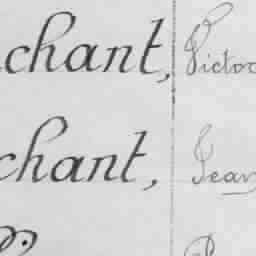 chant, Victor
chant, Jean